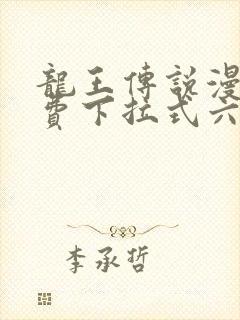 龍王傳說漫
費下拉式六
李承哲